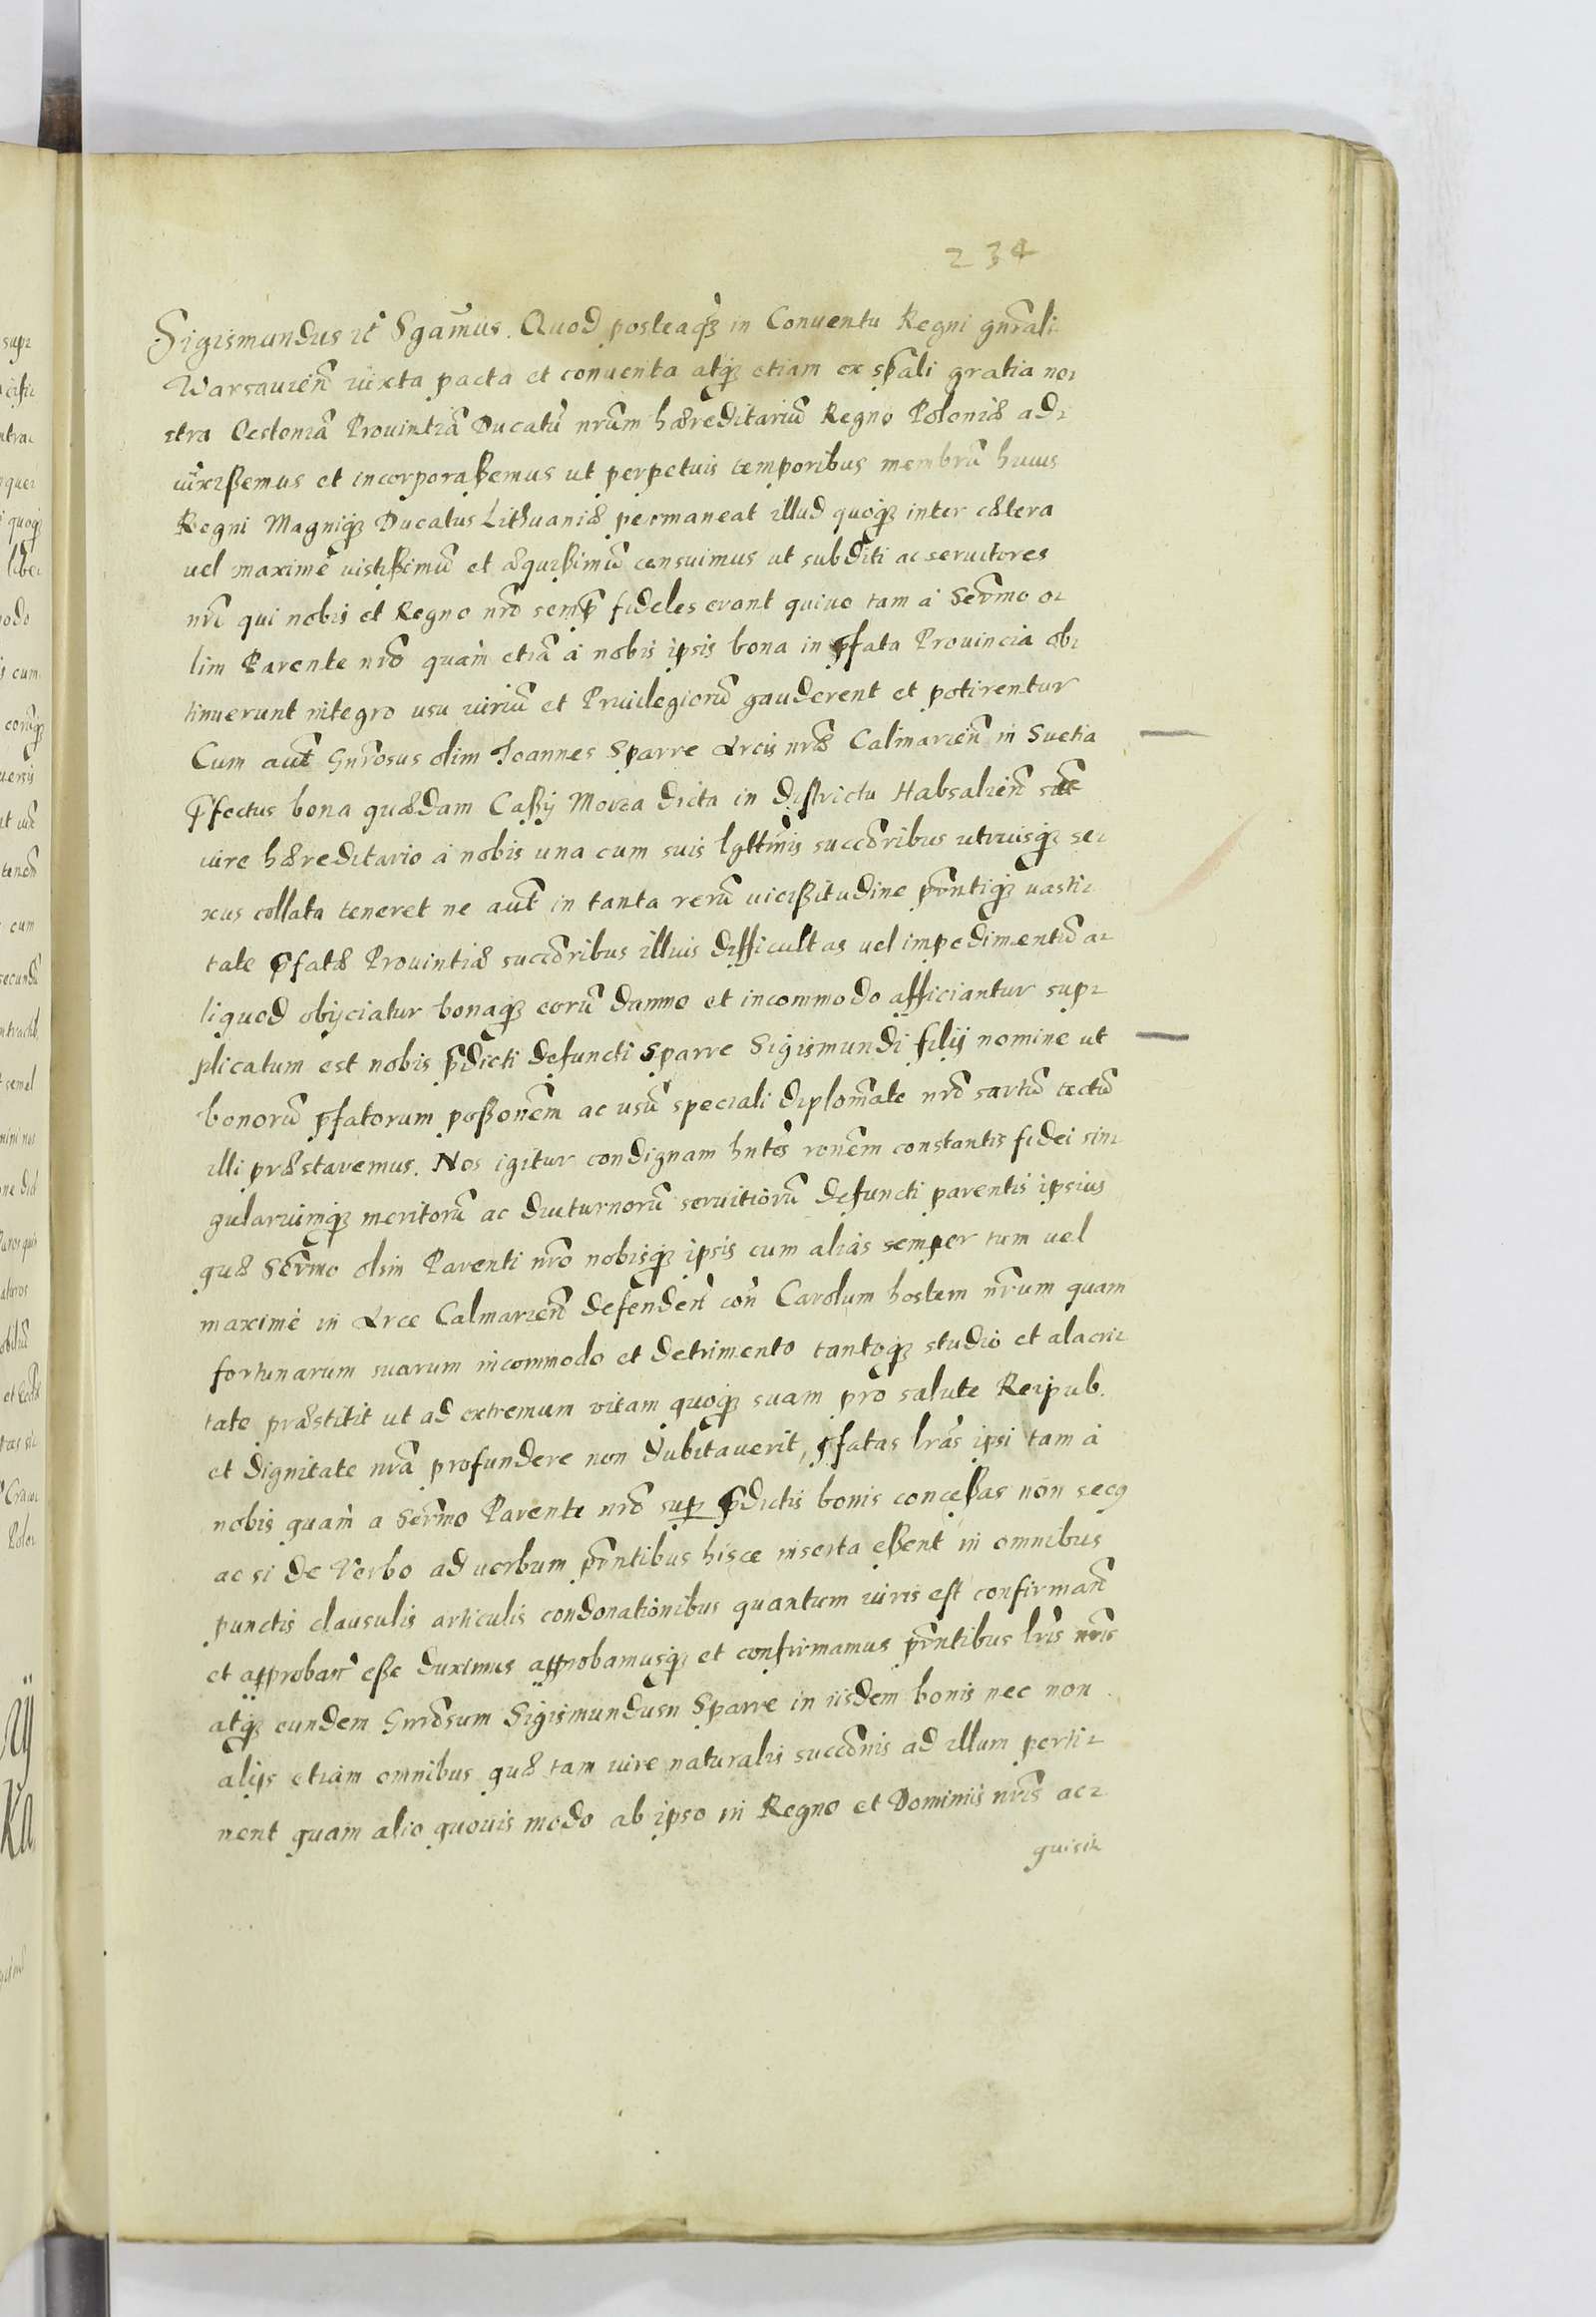 234
Sigismundus etc Sgamus. Quod posteaq̃ in Conventu Regni gnrali
Warsavien̄ iuxta pacta et conventa atq̨ etiam ex spāli gratia nos
stra Oestoniā Provintiā Ducatū nrum hæreditariū Regno Poloniæ ad-
iūxißemus et incorporaßemus ut perpetuis temporibus membrū huius
Regni Magniq̨ Ducatus Lithuaniæ permaneat illud quoq̨ inter cætera
vel maximè iustißimū et æquißimū censuimus ut subditi ac servitores
nri qui nobis et Regno nro semp fideles erant quive tam à Sermo o-
lim Parente nro quàm etiā à nobis ipsis bona in pfata Provincia ob-
tinuerunt integro usu iuriū et Privilegiorū gauderent et potirentur
Cum aūt Gnrosus olim Joannes Sparre Arcis nræ Calmarien̄ in Suetia
pfectus bona quædam Caßÿ Moiza dicta in districtu Habsalien̄ sita
iure hæreditario à nobis una cum suis lgttmis succoribus utriusq̨ se-
xus collata teneret ne aūt in tanta rerū vicißitudine pn̄tiq̨ vasti-
tate pfatæ Provintiæ succoribus illius difficultas vel impedimentū a-
liquod obijciatur bonaq̨ eorū damno et incommodo afficiantur sup-
plicatum est nobis pdicti defuncti Sparre Sigismundi filÿ nomine ut
bonorū pfatorum poßonem ac usū speciali diplomate nro sartū tectū
illi præstaremus. Nos igitur condignam hntes ronem constantis fidei sin-
gulariumq̨ meritorū ac diuturnorū servitiorū defuncti parentis ipsius
quæ Sermo olim Parenti nro nobisq̨ ipsis cum aliàs semper tum vel
maximè in Arce Calmarien̄ defenden̄ con̄ Carolum hostem nrum quam
fortunarum suarum incommodo et detrimento tantoq̨ studio et alacri-
tate præstitit ut ad extremum vitam quoq̨ suam pro salute Reipub.
et dignitate nra profundere non dubitaverit, pfatas lras ipsi tam à
nobis quàm a Sermo Parente nro sup pdictis bonis conceßas non secq
ac si de Verbo ad verbum pn̄tibus hisce inserta eßent in omnibus
punctis clausulis articulis condonationibus quantum iuris est confirman̄
et approban̄ eße duximus approbamusq̨ et confirmamus pn̄tibus lris nris
atq̨ eundem Gnrosum Sigismundum Sparre in iisdem bonis nec non
alijs etiam omnibus quæ tam iure naturalis succonis ad illum perti-
nent quam alio quovis modo ab ipso in Regno et Dominiis nris ac-
quisit